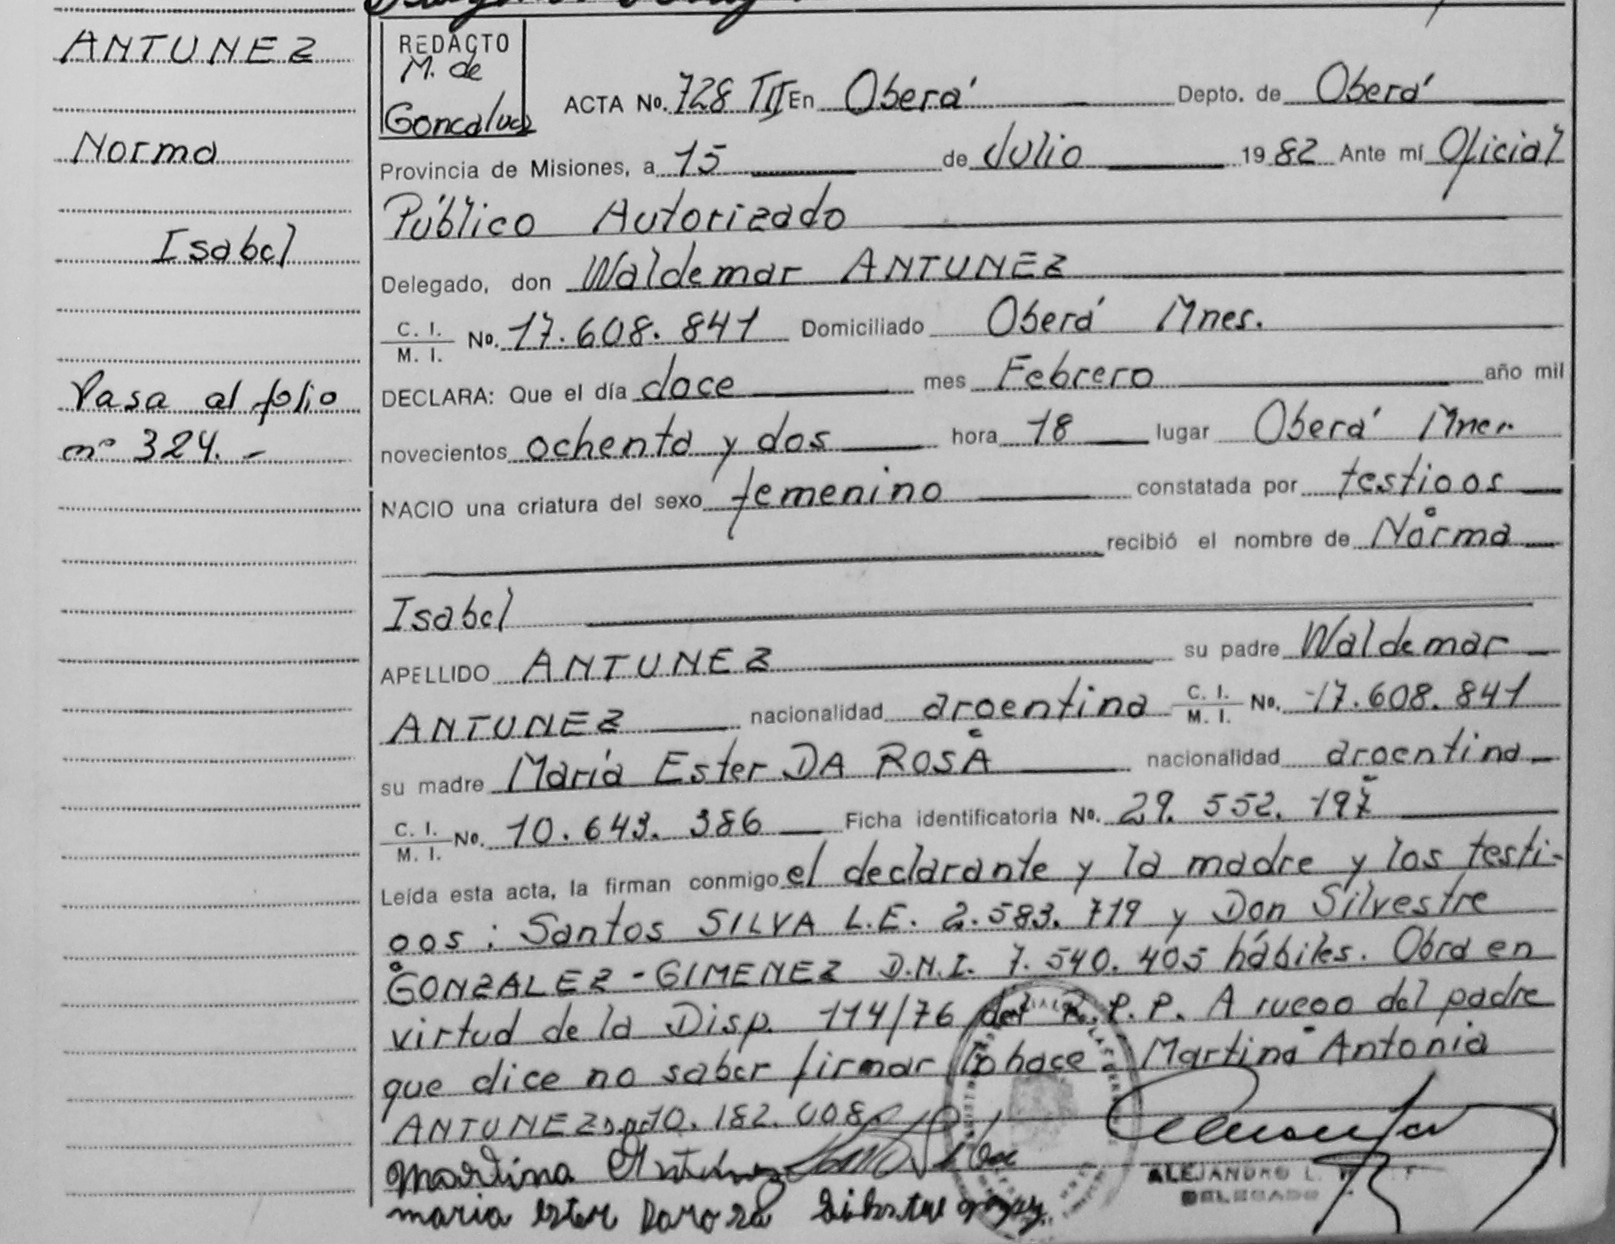 ANTUNEZ
Norma
Isabel
Pasa al folio
nº 324.-
REDACTO
M. de
Goncalves
ACTA No. 728 TII En Oberá Depto. de Oberá
Provincia de Misiones, a 15 de Julio 1982 Ante mí Oficial
Público Autorizado
Delegado, don Waldemar ANTUNEZ
C. I.
M. I. No. 17.608.841 Domiciliado Oberá Mnes.
DECLARA: Que el día doce mes Febrero año mil
novecientos ochenta y dos hora 18 lugar Oberá Mnes.
NACIO una criatura del sexo femenino constatada por testigos
recibió el nombre de Norma
Isabel
APELLIDO ANTUNEZ su padre Waldemar
ANTUNEZ nacionalidad argentina C. I. M. I. No. 17.608.841
su madre María Ester DA ROSA nacionalidad argentina
C. I.
M. I. No. 10.643.386 Ficha identificatoria No. 29.552.197
Leída esta acta, la firman conmigo el declarante y la madre y los testi-
gos: Santos SILVA L.E. 2.583.719 y Don Silvestre
GONZALEZ-GIMENEZ D.N.I. 7.540.405 hábiles. Obra en
virtud de la Disp. 114/76 del R.P.P. A ruego del padre
que dice no saber firmar lo hace Martina Antonia
ANTUNEZ 10.182.008
Martina Antunez
maria ester Darosa
ALEJANDRO L.
DELEGADO